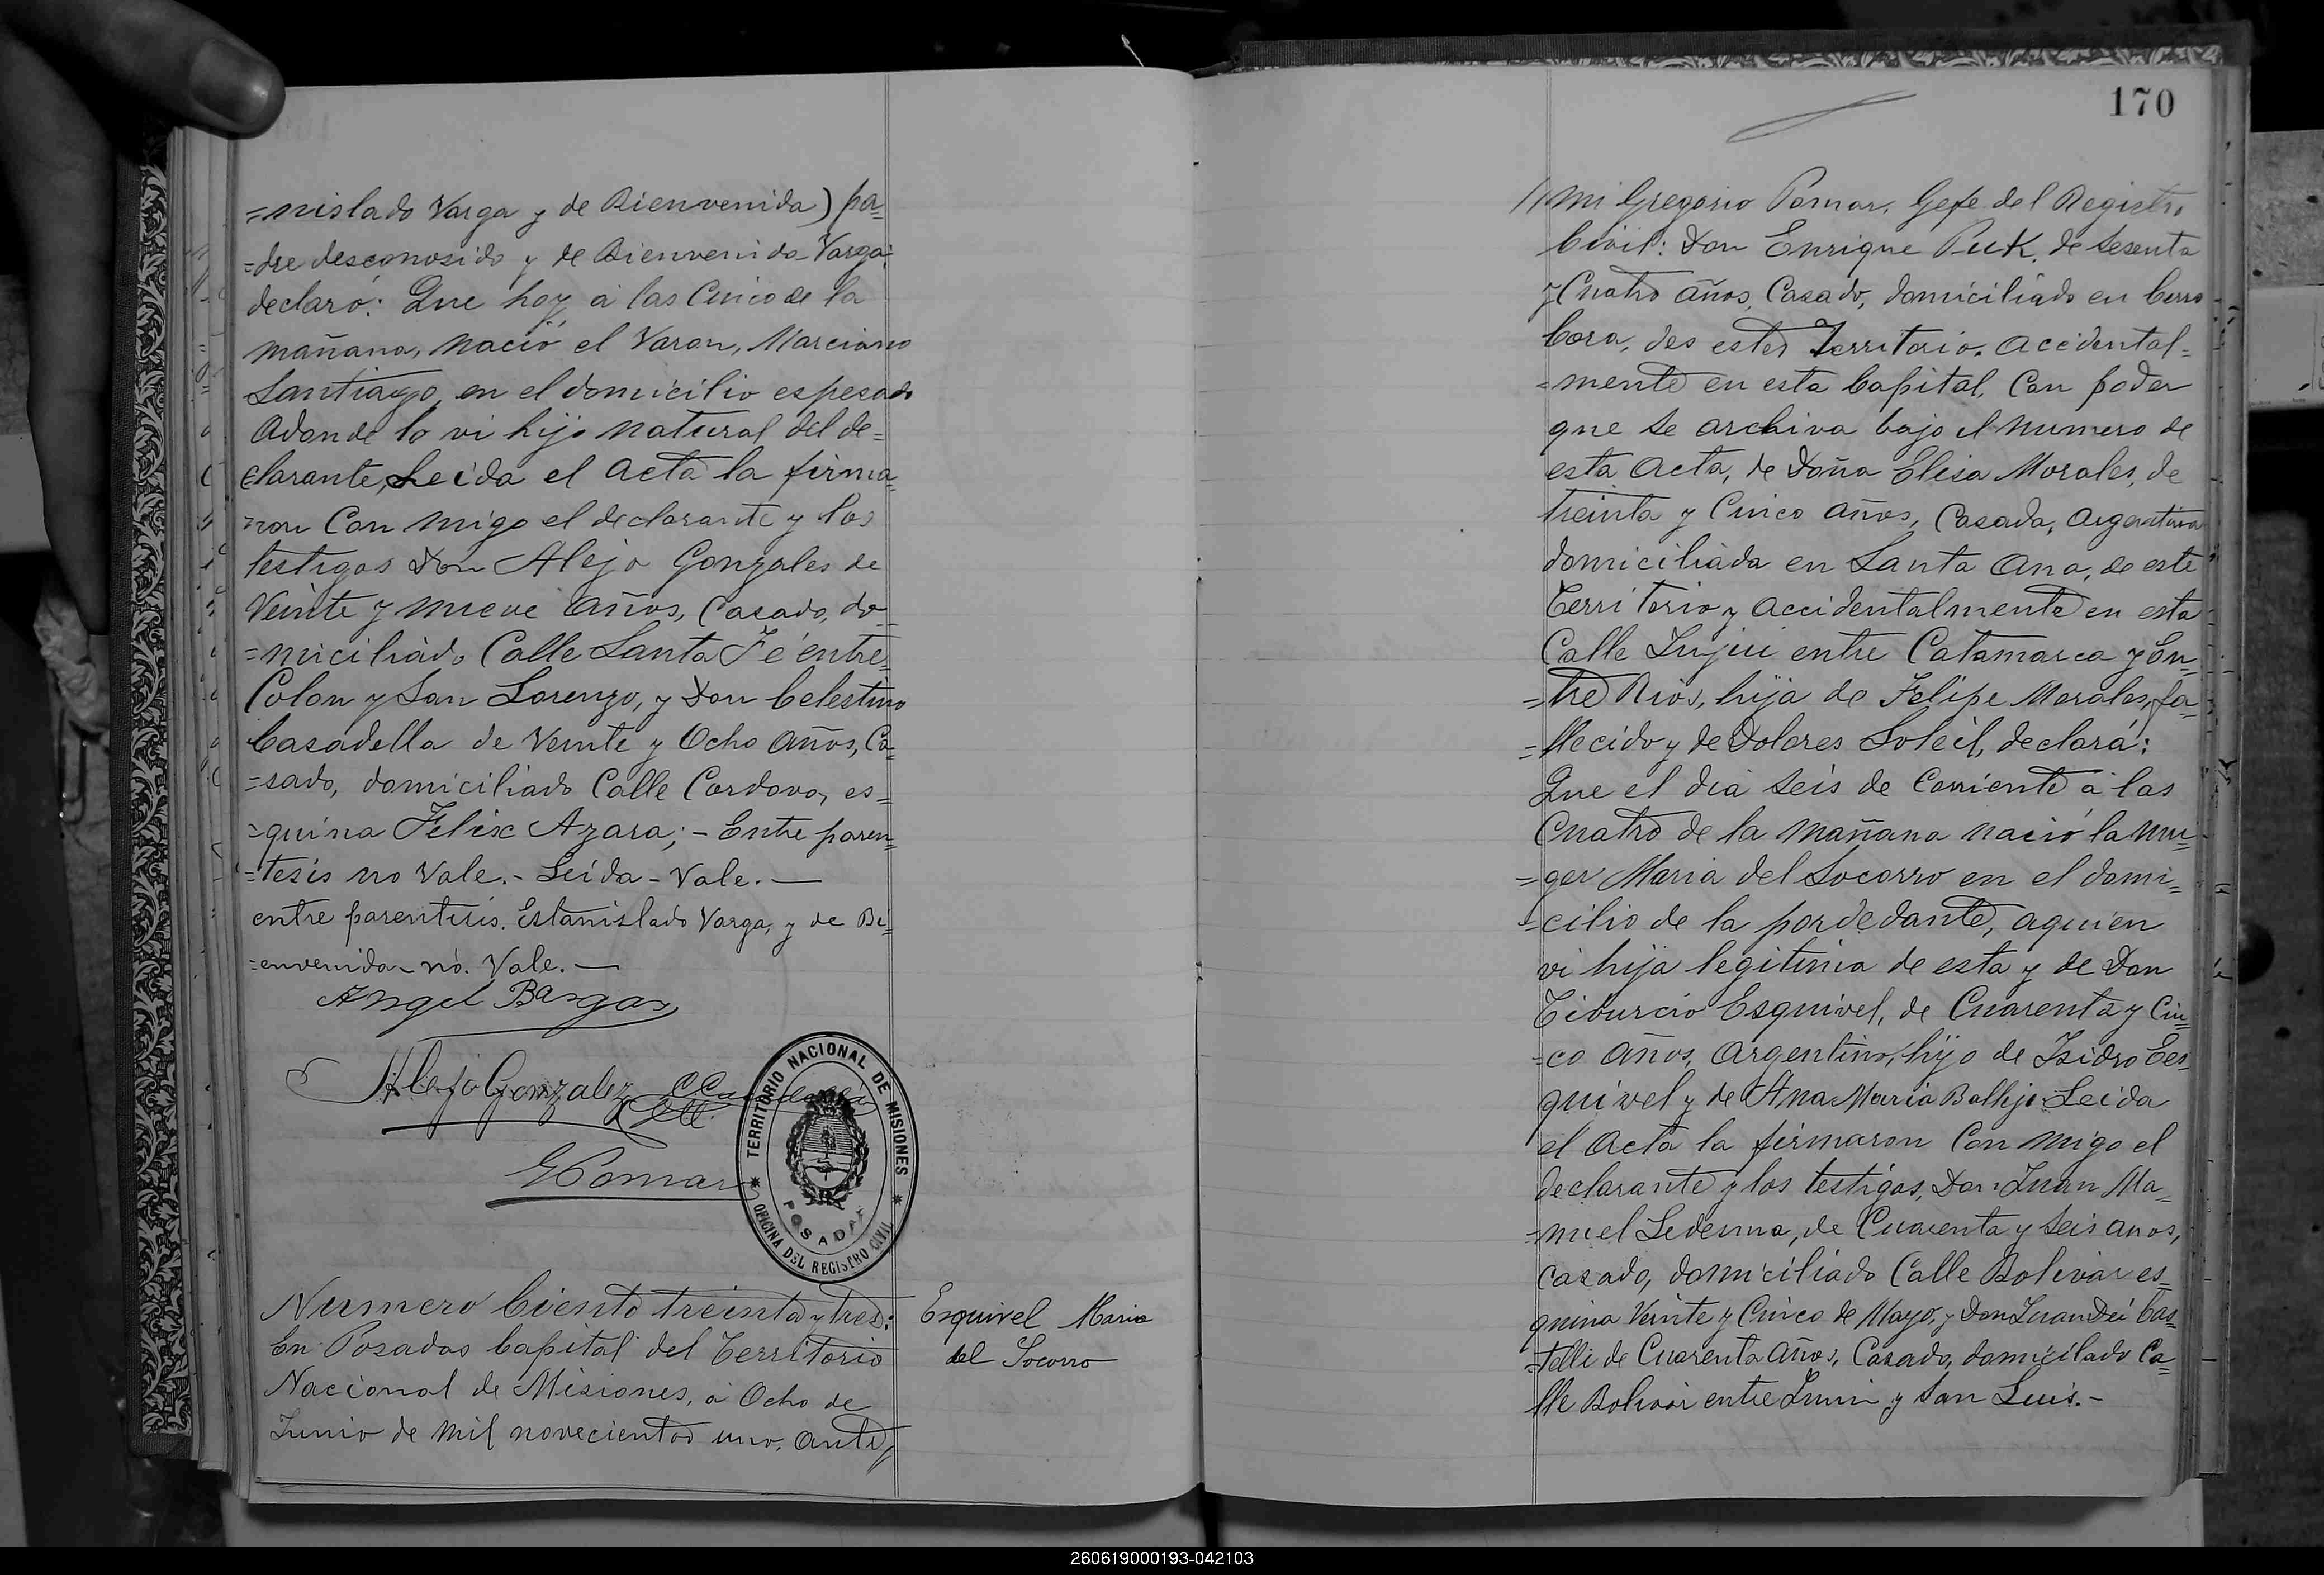 =nislado Varga y de Bienvenida) pa=
=dre desconosido y de Bienvenida Varga;
declaró: Que hoy á las Cinco de la
mañana, nació el Varon, Marciano
Santiago, en el domicilio espesado
Adonde lo vi hijo natural del de=
clarante, Leida el Acta la firma=
=ron Con migo el declarante y los
testigos Don Alejo Gonzales de
Veinte y nueve años, Casado, do=
=miciliado Calle Santa Fé entre
Colon y San Lorenzo, y Don Celestino
Casadella de Veinte y Ocho años, Ca=
=sado, domiciliado Calle Cordova, es=
=quina Felix Azara; - Entre paren=
=tesis no Vale. - Leida - Vale. —
entre parentesis. Estanislado Varga, y de Bi=
=envenida - no. Vale. —
Angel Bargas
Alejo Gonzalez
GPomar
TERRITORIO NACIONAL DE MISIONES
POSADAS
OFICINA DEL REGISTRO CIVIL
Numero Ciento treinta y tres:
En Posadas Capital del Territorio
Nacional de Misiones, á Ocho de
Junio de mil novecientos uno, ante
Esquivel Maria
del Socorro
170
// mi Gregorio Pomar, Gefe del Registro
Civil: Don Enrique Puck, de Sesenta
y Cuatro años, Casado, domiciliado en Cerro
Cora, des estes Territorio. Accidental=
=mente en esta Capital, Con poder
que se archiva bajo el numero de
esta Acta, de Doña Elisa Morales, de
treinta y Cinco años, Casada, Argentina
domiciliada en Santa Ana, de este
Territorio y Accidentalmente en esta
Calle Jujui entre Catamarca y En=
=tre Rios, hija de Felipe Morales, fa=
=llecido y de Dolores Soleil, declara:
Que el dia seis de Corriente á las
Cuatro de la mañana nació la mu=
=ger Maria del Socorro en el domi=
=cilio de la pordedante, aquien
vi hija legitima de esta y de Don
Tiburcio Esquivel, de Cuarenta y Cin=
=co años, Argentino, hijo de Isidro Es=
quivel y de Ana Maria Ballejo Leida
el Acta la firmaron Con migo el
declarante y los testigos, Don Juan Ma=
=nuel Ledesma, de Cuarenta y seis anos,
Casado, domiciliado Calle Bolivar es=
quina Veinte y Cinco de Mayo, y Don Juan Dei Cas=
=telli de Cuarenta Años, Casado, domicilado Ca=
lle Bolivar entre Junin y San Luis. -
260619000193-042103